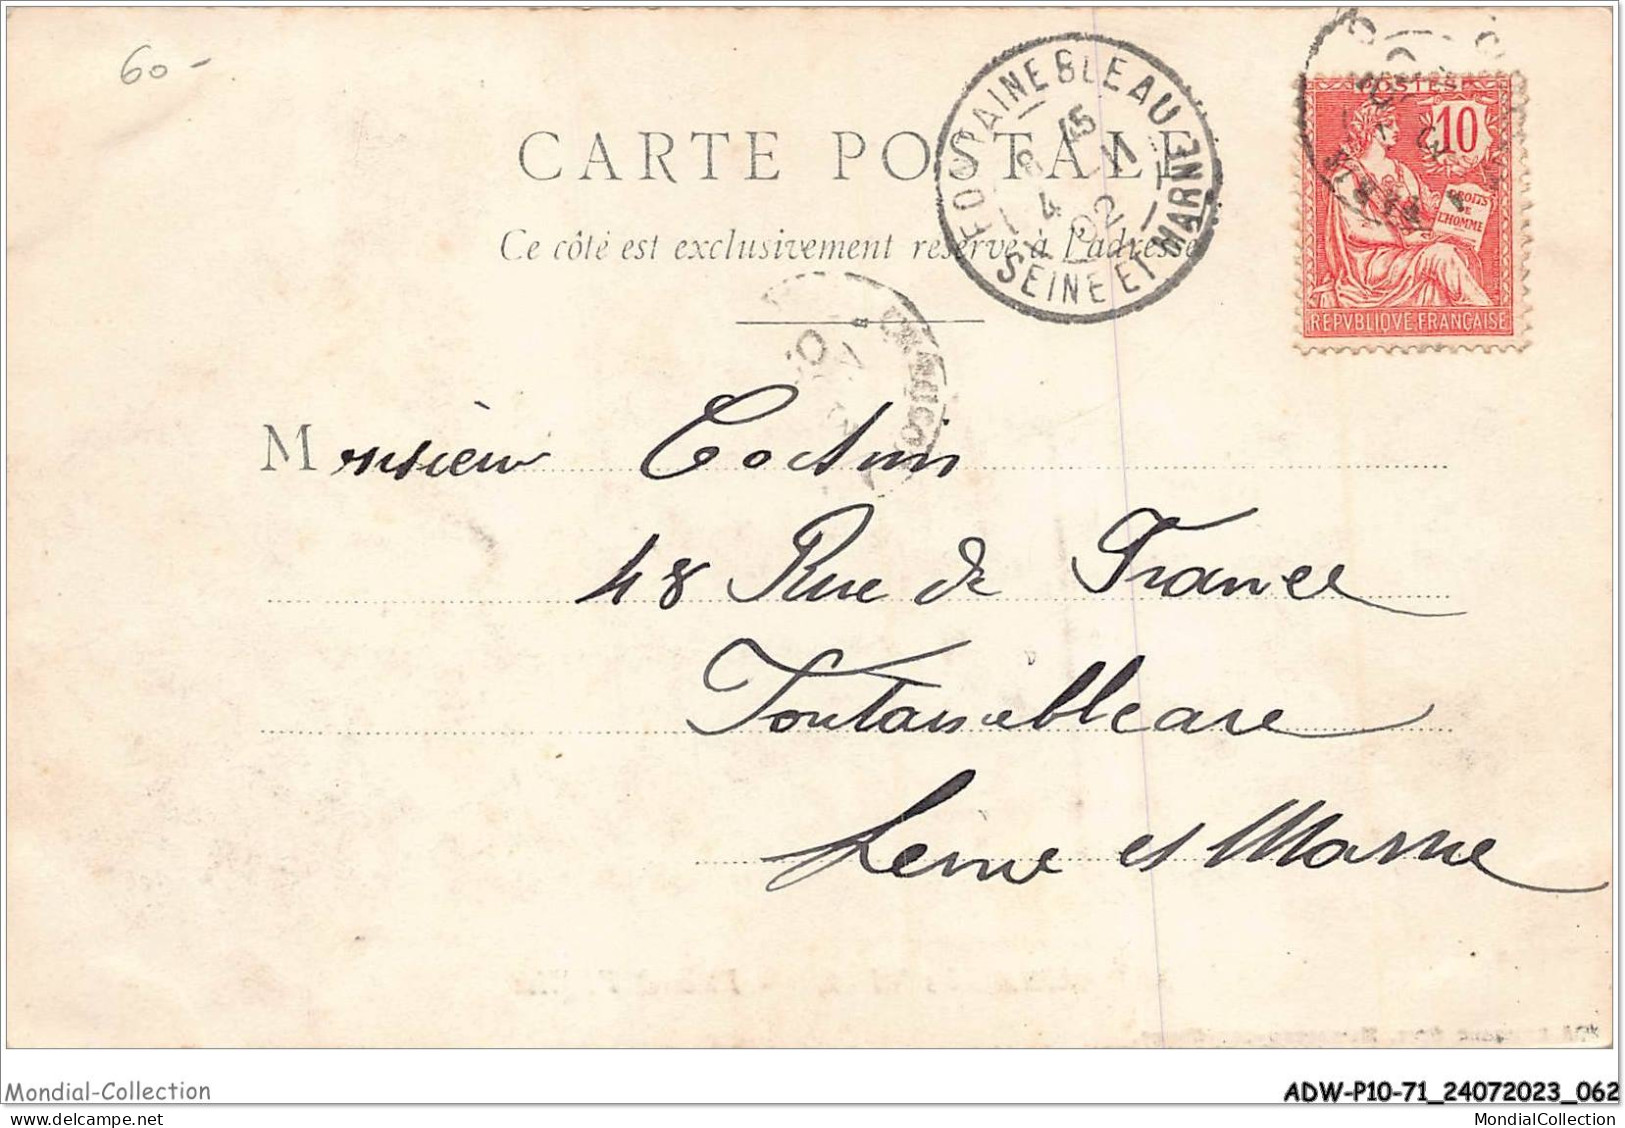 60-
CARTE POSTALE
Ce côté est exclusivement réservé à l'adresse
FONTAINEBLEAU
8 45
4 02
SEINE ET MARNE
POSTES
10
DROITS
DE
L'HOMME
REPVBLIQVE FRANÇAISE
Monsieur
48 Rue de France
Fontainebleau
Seine et Marne
Mondial-Collection
ADW-P10-71_24072023_062
MondialCollection